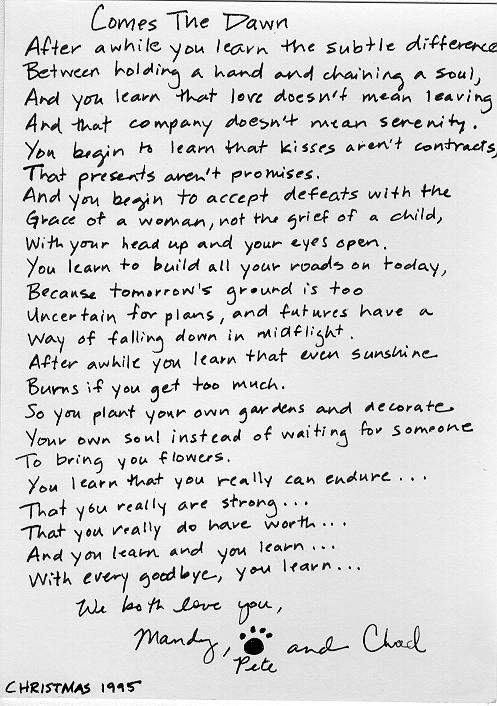 Comes The Dawn
After awhile you learn the subtle difference
Between holding a hand and chaining a soul,
And you learn that love doesn't mean leaving
And that company doesn't mean serenity.
You begin to learn that kisses aren't contracts,
That presents aren't promises.
And you begin to accept defeats with the
Grace of a woman, not the grief of a child,
With your head up and your eyes open.
You learn to build all your roads on today,
Because tomorrow's ground is too
Uncertain for plans, and futures have a
Way of falling down in midflight.
After awhile you learn that even sunshine
Burns if you get too much.
So you plant your own gardens and decorate
Your own soul instead of waiting for someone
To bring you flowers.
You learn that you really can endure...
That you really are strong...
That you really do have worth...
And you learn and you learn...
With every goodbye, you learn...
We both love you,
Mandy, and Chad
Pete
CHRISTMAS 1995